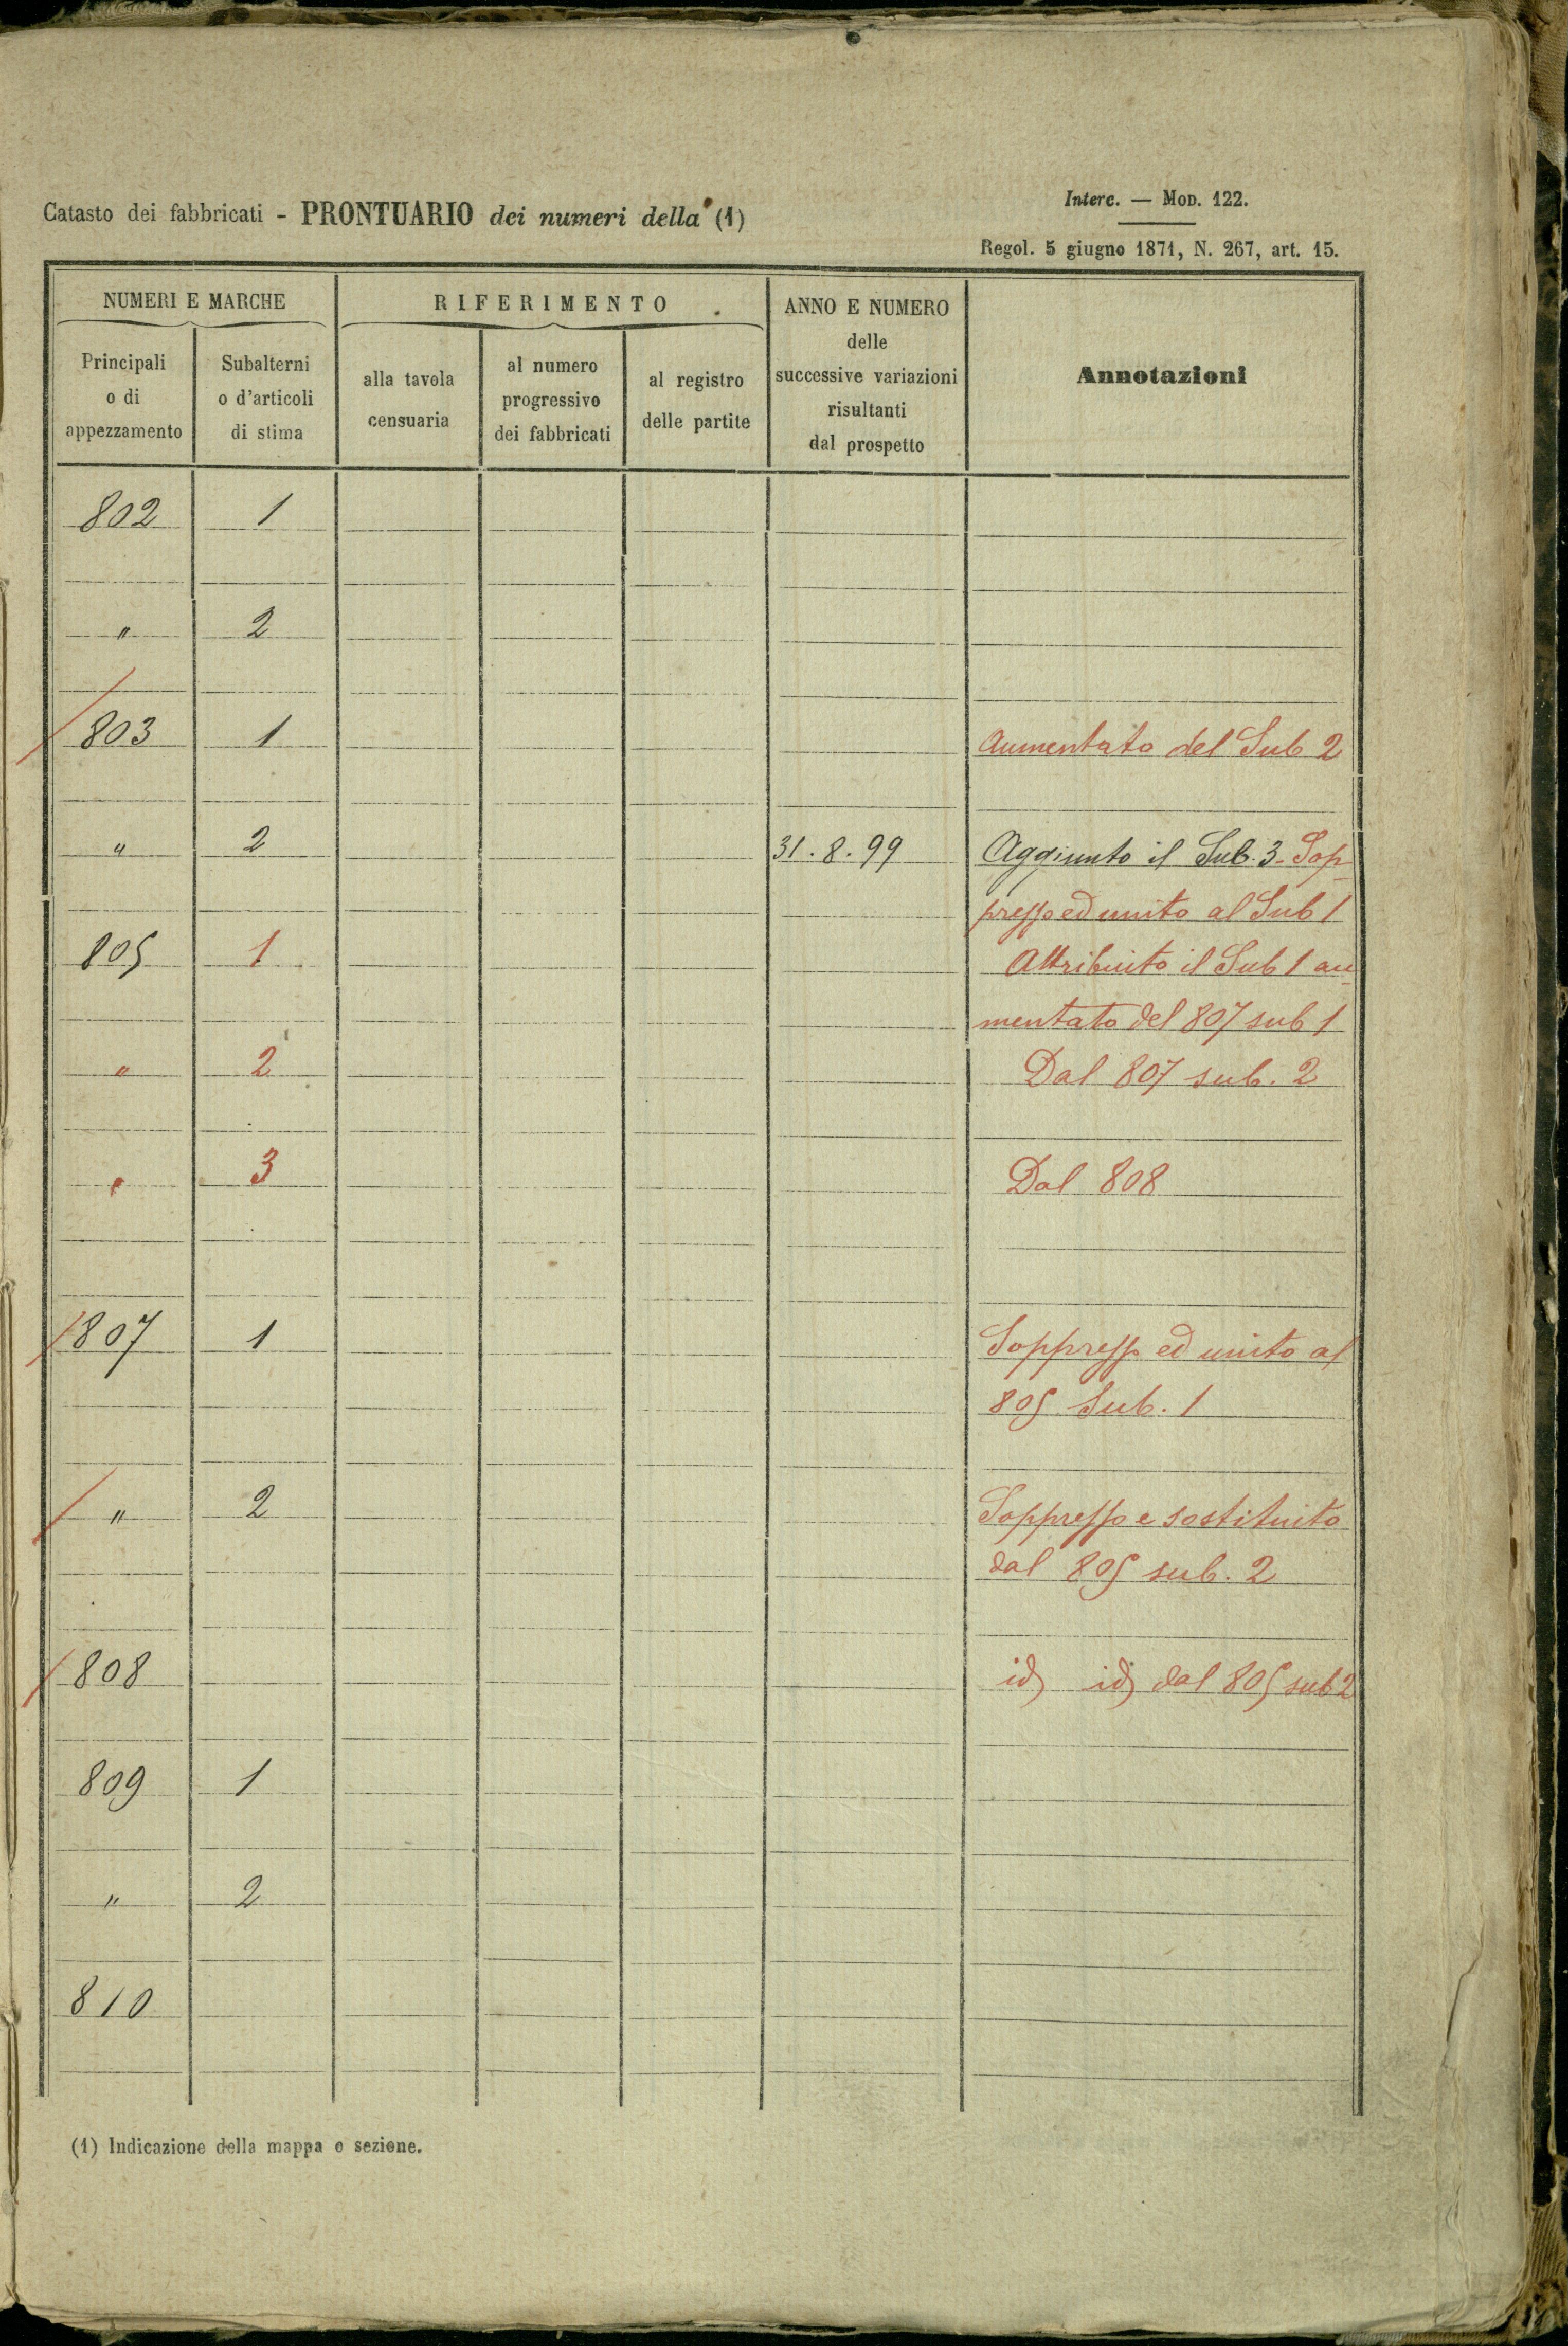 Catasto dei fabbricati - PRONTUARIO dei numeri della (1)
Interc. — Mod. 122.
Regol. 5 giugno 1871, N. 267, art. 15.
NUMERI E MARCHE
RIFERIMENTO
ANNO E NUMERO
delle
successive variazioni
risultanti
dal prospetto
Annotazioni
Principali
o di
appezzamento
Subalterni
o d'articoli
di stima
alla tavola
censuaria
al numero
progressivo
dei fabbricati
al registro
delle partite
802 1
" 2
803 1 Aumentato del Sub 2
" 2 31.8.99 Aggiunto il Sub. 3 - Sop
presso ed unito al Sub 1
805 1 Attribuito il Sub 1 au
mentato del 807 sub 1
" 2 Dal 807 sub. 2
" 3 Dal 808
807 1 Soppresso ed unito al
805 Sub. 1
" 2 Soppresso e sostituito
dal 805 sub. 2
808 id id dal 805 sub 2
809 1
" 2
810
(1) Indicazione della mappa o sezione.